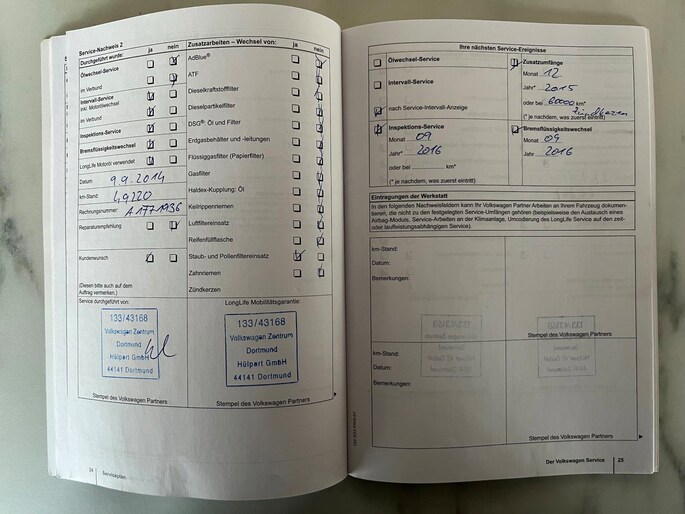 Service-Nachweis 2
Durchgeführt wurde: ja nein
Ölwechsel-Service
im Verbund
Intervall-Service
inkl. Motorölwechsel
im Verbund
Inspektions-Service
Bremsflüssigkeitswechsel
LongLife Motoröl verwendet
Datum 9.9.2014
km-Stand: 49220
Rechnungsnummer: A1771936
Reparaturempfehlung
Kundenwunsch
(Diesen bitte auch auf dem
Auftrag vermerken.)
Zusatzarbeiten – Wechsel von: ja nein
AdBlue®
ATF
Dieselkraftstofffilter
Dieselpartikelfilter
DSG®: Öl und Filter
Erdgasbehälter und -leitungen
Flüssiggasfilter (Papierfilter)
Gasfilter
Haldex-Kupplung: Öl
Keilrippenriemen
Luftfiltereinsatz
Reifenfüllflasche
Staub- und Pollenfiltereinsatz
Zahnriemen
Zündkerzen
Service durchgeführt von:
133/43168
Volkswagen Zentrum
Dortmund
Hülpert GmbH
44141 Dortmund
Stempel des Volkswagen Partners
LongLife Mobilitätsgarantie:
133/43168
Volkswagen Zentrum
Dortmund
Hülpert GmbH
44141 Dortmund
Stempel des Volkswagen Partners
24 Serviceplan
Ihre nächsten Service-Ereignisse
Ölwechsel-Service
Intervall-Service
nach Service-Intervall-Anzeige
Zusatzumfänge
Monat 12
Jahr* 2015
oder bei 60000 km*
Zündkerzen
(* je nachdem, was zuerst eintritt)
Inspektions-Service
Monat 09
Jahr* 2016
oder bei km*
(* je nachdem, was zuerst eintritt)
Bremsflüssigkeitswechsel
Monat 09
Jahr 2016
Eintragungen der Werkstatt
In den folgenden Nachweisfeldern kann Ihr Volkswagen Partner Arbeiten an Ihrem Fahrzeug dokumen-
tieren, die nicht zu den festgelegten Service-Umfängen gehören (beispielsweise den Austausch eines
Airbag-Moduls, Service-Arbeiten an der Klimaanlage, Umcodierung des LongLife Service auf den zeit-
oder laufleistungsabhängigen Service).
km-Stand:
Datum:
Bemerkungen:
Stempel des Volkswagen Partners
km-Stand:
Datum:
Bemerkungen:
Stempel des Volkswagen Partners
Der Volkswagen Service 25